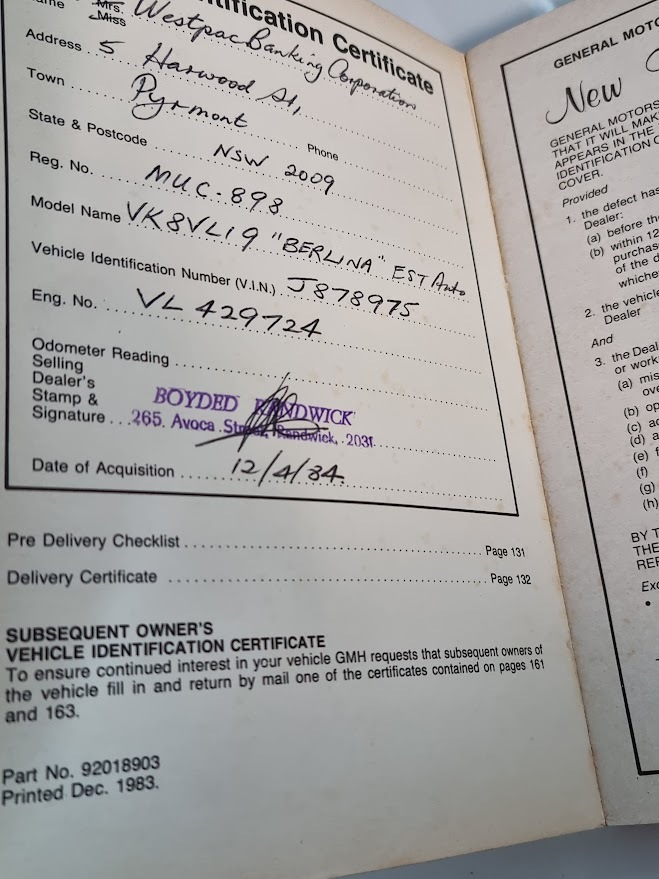 ntification Certificate
Mrs.
Miss
Westpac Banking Corporation
Address 5 Harwood St,
Town Pyrmont
Phone
State & Postcode NSW 2009
Reg. No. MUC-898
Model Name VK8VL19 "BERLINA" EST Auto
Vehicle Identification Number (V.I.N.) J878975
Eng. No. VL 429724
Odometer Reading
Selling
Dealer's
Stamp &
Signature
BOYDED RANDWICK
265. Avoca Street, Randwick, 2031.
Date of Acquisition 12/4/84.
Pre Delivery Checklist Page 131
Delivery Certificate Page 132
SUBSEQUENT OWNER'S
VEHICLE IDENTIFICATION CERTIFICATE
To ensure continued interest in your vehicle GMH requests that subsequent owners of
the vehicle fill in and return by mail one of the certificates contained on pages 161
and 163.
Part No. 92018903
Printed Dec. 1983.
GENERAL MOTO
New
GENERAL MOTORS
THAT IT WILL MAK
APPEARS IN THE
IDENTIFICATION C
COVER.
Provided
1. the defect has
Dealer:
(a) before th
(b) within 12
purchas
of the d
whiche
2. the vehicle
Dealer
And
3. the Deal
or work
(a) mis
ove
(b) op
(c) ac
(d) a
(e) f
(f)
(g)
(h)
BY T
THE
REF
Exc